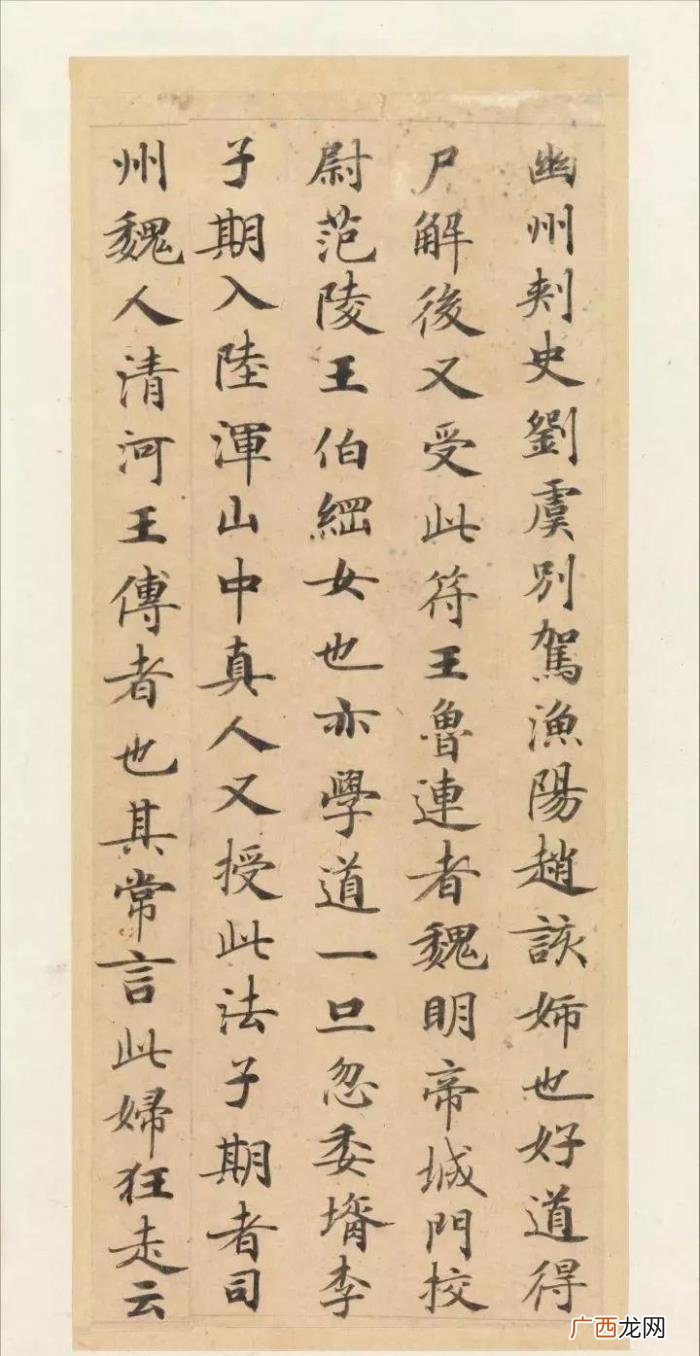 幽州刾史劉虞別駕漁陽趙該姉也好道得
尸解後又受此符王魯連者魏明帝城門挍
尉范陵王伯綱女也亦學道一旦忽委壻李
子期入陸渾山中真人又授此法子期者司
州魏人清河王傅者也其常言此婦狂走云
广西龙网